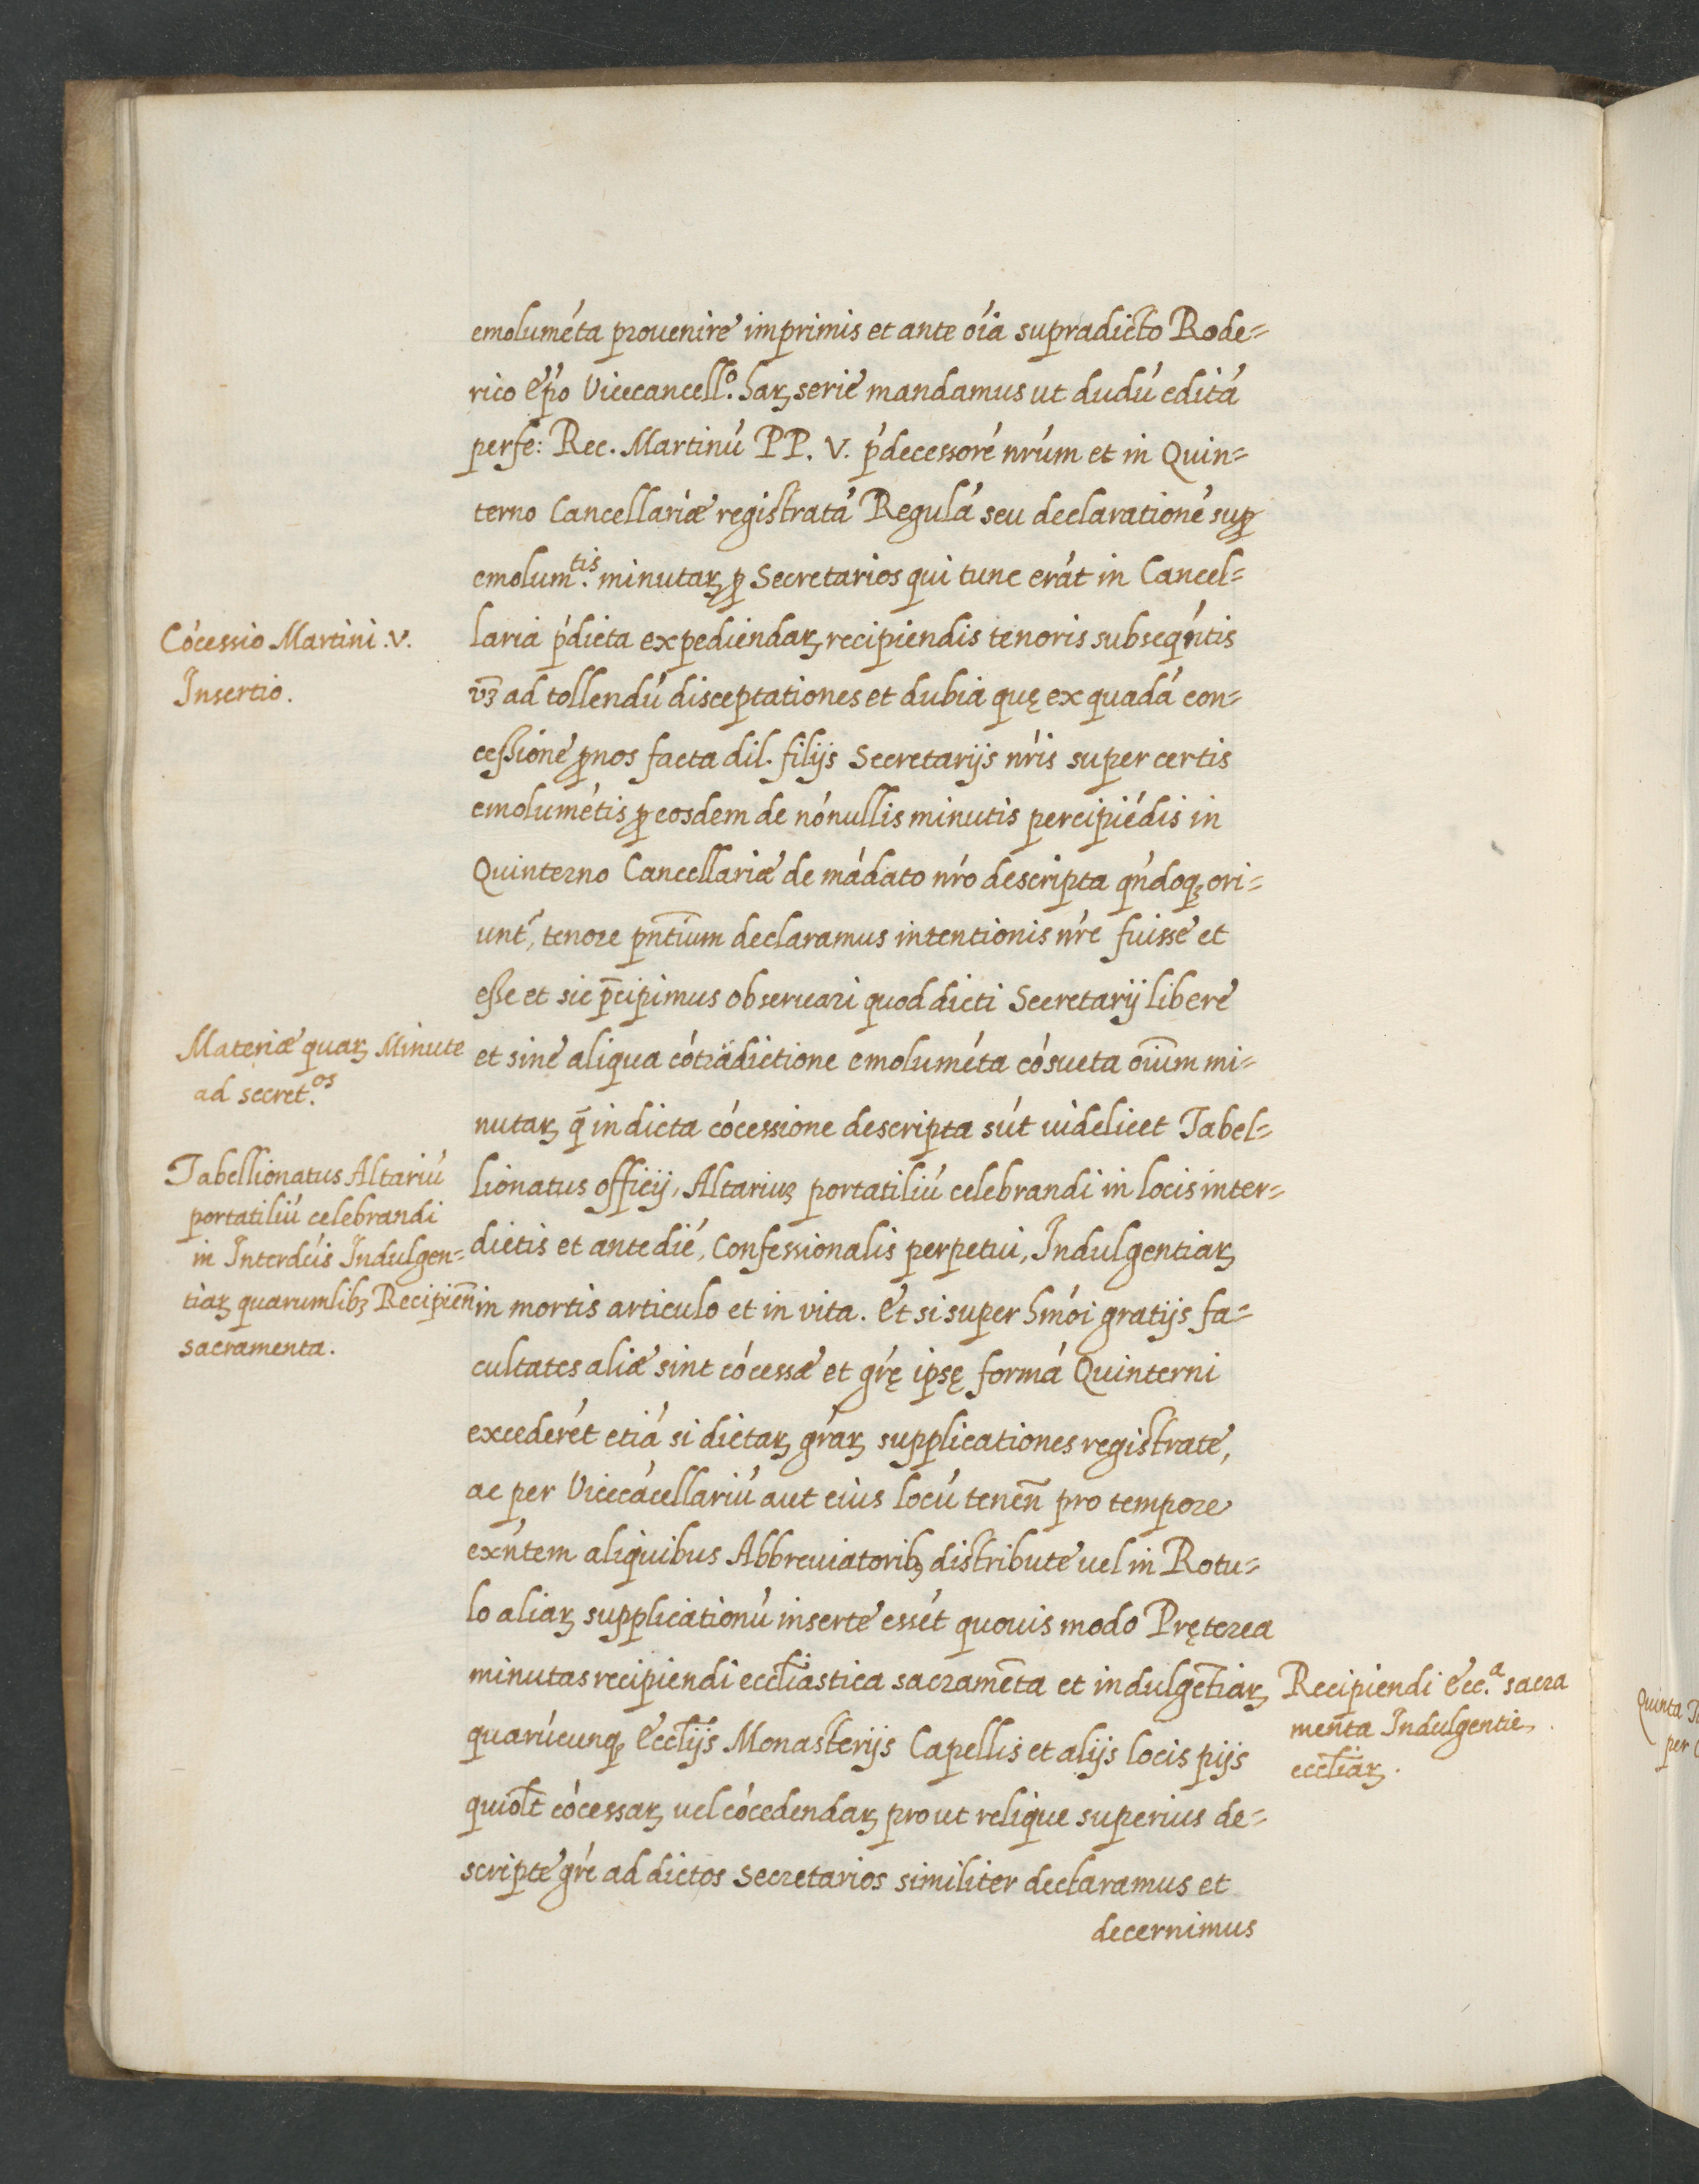 emolumẽta prouenire imprimis et ante oĩa supradicto Rode=
rico Ep̃o Vicecancell.º haꝝ serie mandamus ut dudũ editã
perfe: Rec. Martinũ PP. V. p̃decessorẽ nr̃um et in Quin=
terno Cancellariæ registratã Regulã seu declarationẽ suꝑ
emolum.tis minutaꝝ ꝑ Secretarios qui tunc erãt in Cancel=
laria p̃dicta expediendaꝝ recipiendis tenoris subseq̃ntis
vꝫ ad tollendũ disceptationes et dubia quę ex quadã con=
cessione ꝑ nos facta dil. filijs Secretarijs nr̃is super certis
emolumẽtis ꝑ eosdem de nõnullis minutis percipiẽdis in
Quinterno Cancellariæ de mãdato nr̃o descripta qñdoqꝫ ori=
unt̃, tenore pñtium declaramus intentionis nr̃e fuisse et
esse et sic p̃cipimus obseruari quod dicti Secretarij libere
et sine aliqua cõtradictione emolumẽta cõsueta oĩum mi=
nutaꝝ q̃ in dicta cõcessione descripta sũt uidelicet Tabel=
lionatus officij, Altariuꝫ portatiliũ celebrandi in locis inter=
dictis et ante diẽ, Confessionalis perpetui, Indulgentiaꝝ
in mortis articulo et in vita. Et si super hmõi gratijs fa=
cultates aliæ sint cõcessæ et gr̃ę ipsę formã Quinterni
excederẽt etiã si dictaꝝ gr̃aꝝ supplicationes registrate,
ac per Vicecãcellariũ aut eius locũ teneñ pro tempore
exñtem aliquibus Abbreuiatoribꝫ distribute uel in Rotu=
lo aliaꝝ supplicationũ inserte essẽt quouis modo Pręterea
minutas recipiendi eccl̃iastica sacramẽta et indulgẽtiaꝝ
quarũcunqꝫ Eccl̃ijs Monasterijs Capellis et alijs locis pijs
quiol̃t cõcessaꝝ uel cõcedendaꝝ prout relique superius de=
scripte gr̃e ad dictos Secretarios similiter declaramus et
decernimus
Cõcessio Martini .V.
Insertio.
Materiæ quaꝝ Minute
ad secret.os
Tabellionatus Altariũ
portatiliũ celebrandi
in Interdc̃is Indulgen=
tiaꝝ quarumlibꝫ Recipieñ
sacramenta.
Recipiendi Ecc.a sacra
menta Indulgentie
eccl̃iaꝝ.
Quinta
per